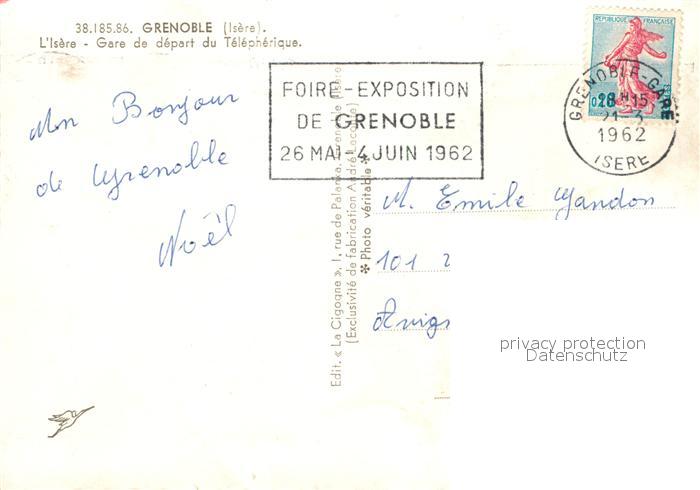 38.185.86. GRENOBLE (Isère).
L'Isère - Gare de départ du Téléphérique.
Mon Bonjour
de Grenoble
Noël
FOIRE-EXPOSITION
DE GRENOBLE
26 MAI-4 JUIN 1962
REPUBLIQUE FRANÇAISE
GRENOBLE-GARE
18H15
21-3
1962
ISERE
Edit. « La Cigogne », 1, rue de Palanka, Grenoble (Isère)
(Exclusivité de fabrication André Leconte)
✻ Photo véritable ✻
M. Emile Mandon
101
privacy protection
Datenschutz